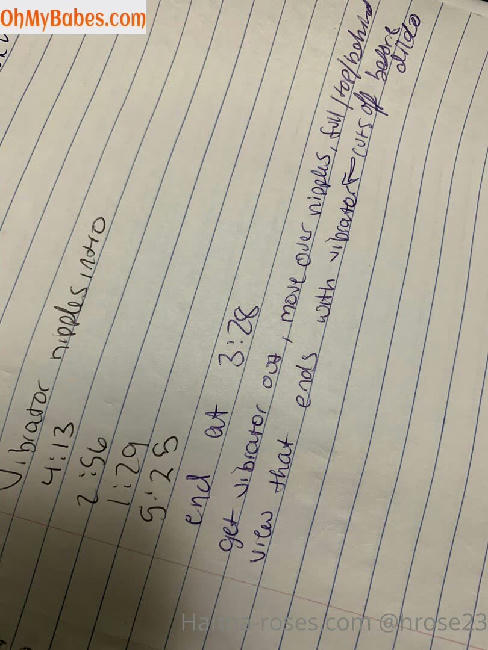 OhMyBabes.com
Vibrator nipples intro
4:13
2:56
1:29
5:25
end at 3:28
get vibrator out, move over nipples, full/top/behind
view that ends with vibrator - cuts off before
dildo
-roses.com @hrose23